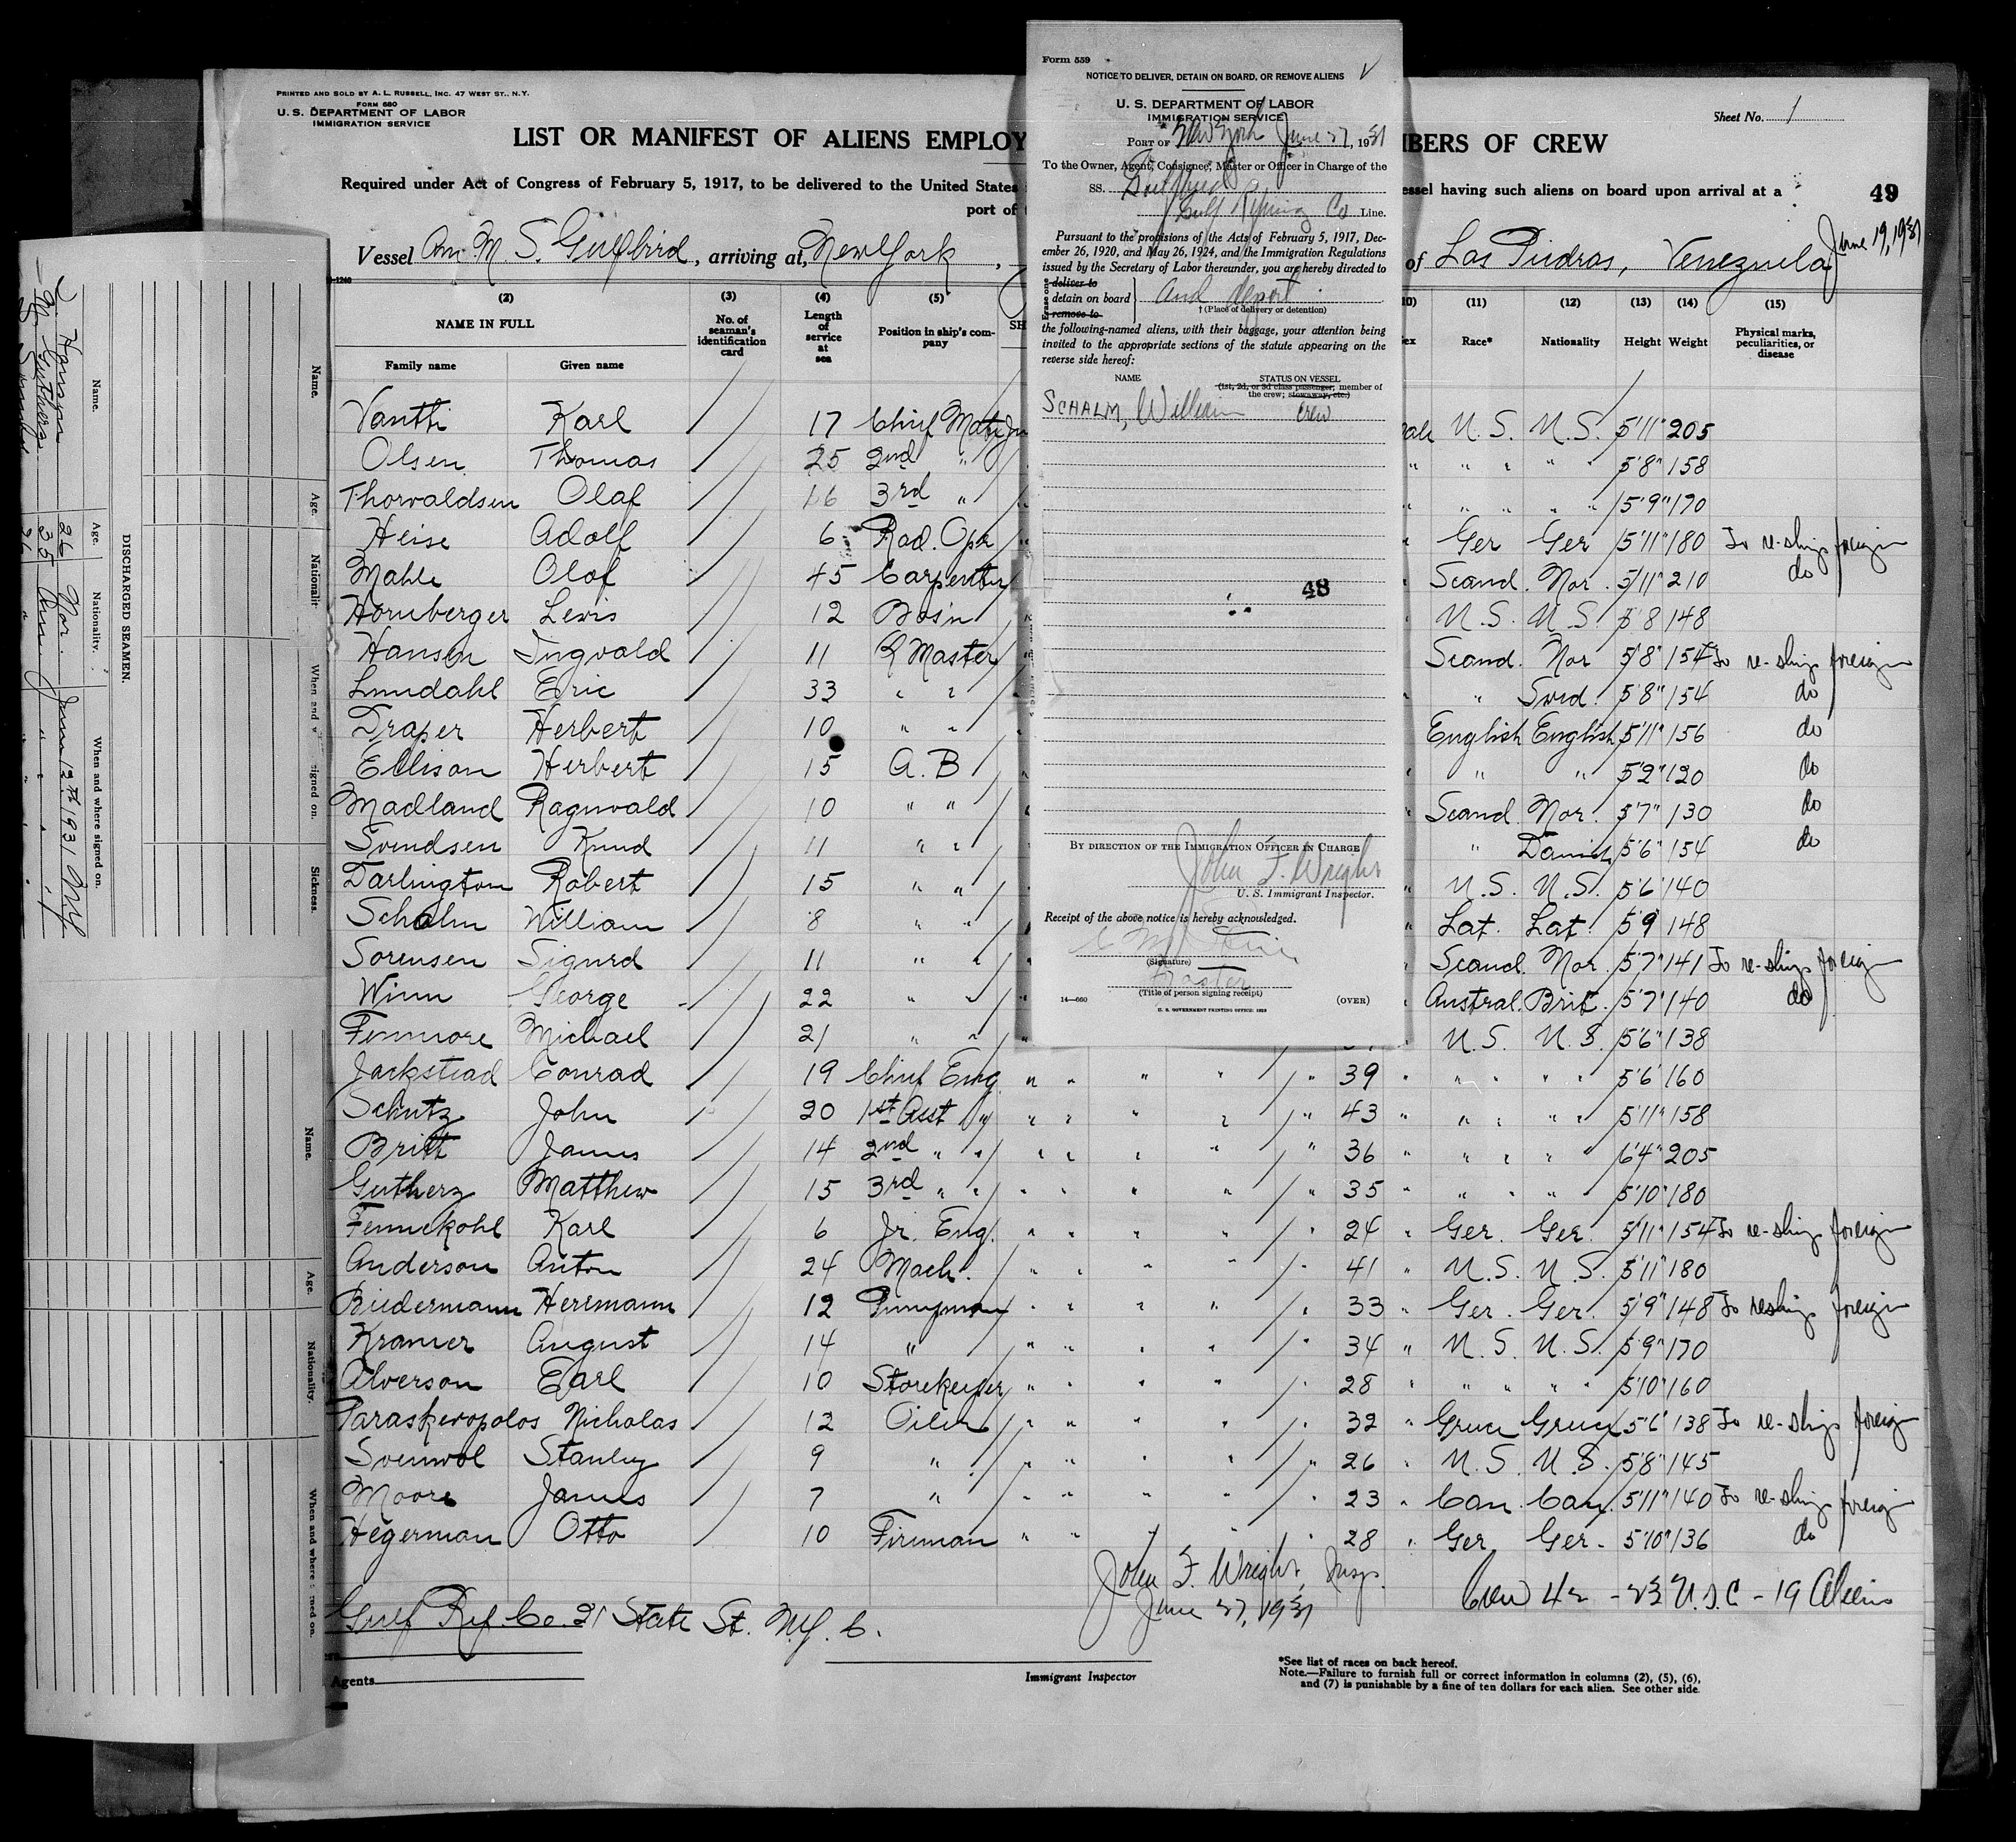 PRINTED AND SOLD BY A. L. RUSSELL, INC. 47 WEST ST., N.Y.
FORM 680
U. S. DEPARTMENT OF LABOR
IMMIGRATION SERVICE
Sheet No. 1
LIST OR MANIFEST OF ALIENS EMPLOY
MBERS OF CREW
Required under Act of Congress of February 5, 1917, to be delivered to the United States
essel having such aliens on board upon arrival at a
port of
49
Vessel Am. M. S. Gulfbird, arriving at New York,
of Las Piedras, Venezuela June 19, 1931
(2) (3) (4) (5) (10) (11) (12) (13) (14) (15)
NAME IN FULL
Family name Given name
No. of seaman's identification card
Length of service at sea
Position in ship's company
Sex Race* Nationality Height Weight
Physical marks, peculiarities, or disease
Karl 17 Chief Mate male U. S. U. S. 5'11" 205
Olsen Thomas 25 2nd " " " " " " 5'8" 158
Thorvaldsen Olaf 16 3rd " " " " " " 5'9" 170
Heise Adolf 6 Rad. Opr " Ger Ger 5'11" 180 To re-ship foreign
Mahle Olof 45 Carpenter " Scand. Nor. 5'11" 210 do
Hornberger Lewis 12 Bos'n " U. S. U. S. 5'8 148
Hansen Ingvald 11 Q Master Scand. Nor 5'8" 154 To re-ship foreign
Lundahl Eric 33 " " " " Swed. 5'8" 154 do
Draper Herbert 10 " " English English 5'11" 156 do
Ellison Herbert 15 A. B " " " 5'2" 120 do
Madland Ragnvald 10 " " " Scand. Nor. 5'7" 130 do
Svendsen Knud 11 " " " Danish 5'6" 154 do
Darlington Robert 15 " " " U. S. U. S. 5'6" 140
Schalm William 8 " " " Lat. Lat. 5'9 148
Sorensen Sigurd 11 " " " Scand. Nor. 5'7" 141 To re-ship foreign
Winn George 22 " " " Austral. Brit. 5'7" 140 do
Fenmore Michael 21 " " U. S. U. S. 5'6" 138
Jackstead Conrad 19 Chief Eng. " " " " " 39 " " " " " 5'6" 160
Schutz John 20 1st Asst " " " " " " 43 " " " " " 5'11" 158
Britt James 14 2nd " " " " " " " 36 " " " " " 6'4" 205
Gutherz Matthew 15 3rd " " " " " " " 35 " " " " " 5'10" 180
Fennekohl Karl 6 Jr. Eng. " " " " " 24 " Ger. Ger. 5'11" 154 To re-ship foreign
Anderson Anton 24 Mach. " " " " " 41 " U. S. U. S. 5'11" 180
Biedermann Herrmann 12 Pumpman " " " " " 33 " Ger. Ger. 5'9" 148 To reship foreign
Kramer August 14 " " " " " " 34 " U. S. U. S. 5'9" 170
Alverson Earl 10 Storekeeper " " " " " 28 " " " " " 5'10" 160
Paraskevopolos Nicholas 12 Oiler " " " " " 32 " Greece Greece 5'6" 138 To re-ship foreign
Stanley 9 " " " " " " 26 " U. S. U. S. 5'8" 145
Moore James 7 " " " " " " 23 " Can. Can. 5'11" 140 To re-ship foreign
Hegerman Otto 10 Fireman " " " " " 28 " Ger. Ger. 5'10" 136 do
John F. Wright, Insp.
June 27, 1931
Crew 42 - 23 U.S.C - 19 Aliens
Gulf Ref. Co. 21 State St. N.Y. C.
Agents
Immigrant Inspector
*See list of races on back hereof.
Note.—Failure to furnish full or correct information in columns (2), (5), (6),
and (7) is punishable by a fine of ten dollars for each alien. See other side.
Form 559
NOTICE TO DELIVER, DETAIN ON BOARD, OR REMOVE ALIENS
U. S. DEPARTMENT OF LABOR
IMMIGRATION SERVICE
PORT OF New York June 27, 1931
To the Owner, Agent, Consignee, Master or Officer in Charge of the
SS. Gulfbird
Gulf Refining Co Line.
Pursuant to the provisions of the Acts of February 5, 1917, Dec-
ember 26, 1920, and May 26, 1924, and the Immigration Regulations
issued by the Secretary of Labor thereunder, you are hereby directed to
Erase one
deliver to
detain on board and deport
remove to
†(Place of delivery or detention)
the following-named aliens, with their baggage, your attention being
invited to the appropriate sections of the statute appearing on the
reverse side hereof:
NAME STATUS ON VESSEL
(1st, 2d, or 3d class passenger, member of
the crew; stowaway, etc.)
SCHALM, William crew
48
BY DIRECTION OF THE IMMIGRATION OFFICER IN CHARGE
John F. Wright
U. S. Immigrant Inspector.
Receipt of the above notice is hereby acknowledged.
(Signature)
Master
(Title of person signing receipt)
14—660 (OVER)
U. S. GOVERNMENT PRINTING OFFICE: 1929
DISCHARGED SEAMEN.
Name. Age. Nationality. When and where signed on.
J. Hansen 26 Nor. June 12th 1931 N.Y.
M. Gutherz 35 Amer. " "
Name. Age. Nationality. When and where signed on. Sickness.
Name. Age. Nationality. When and where signed on.